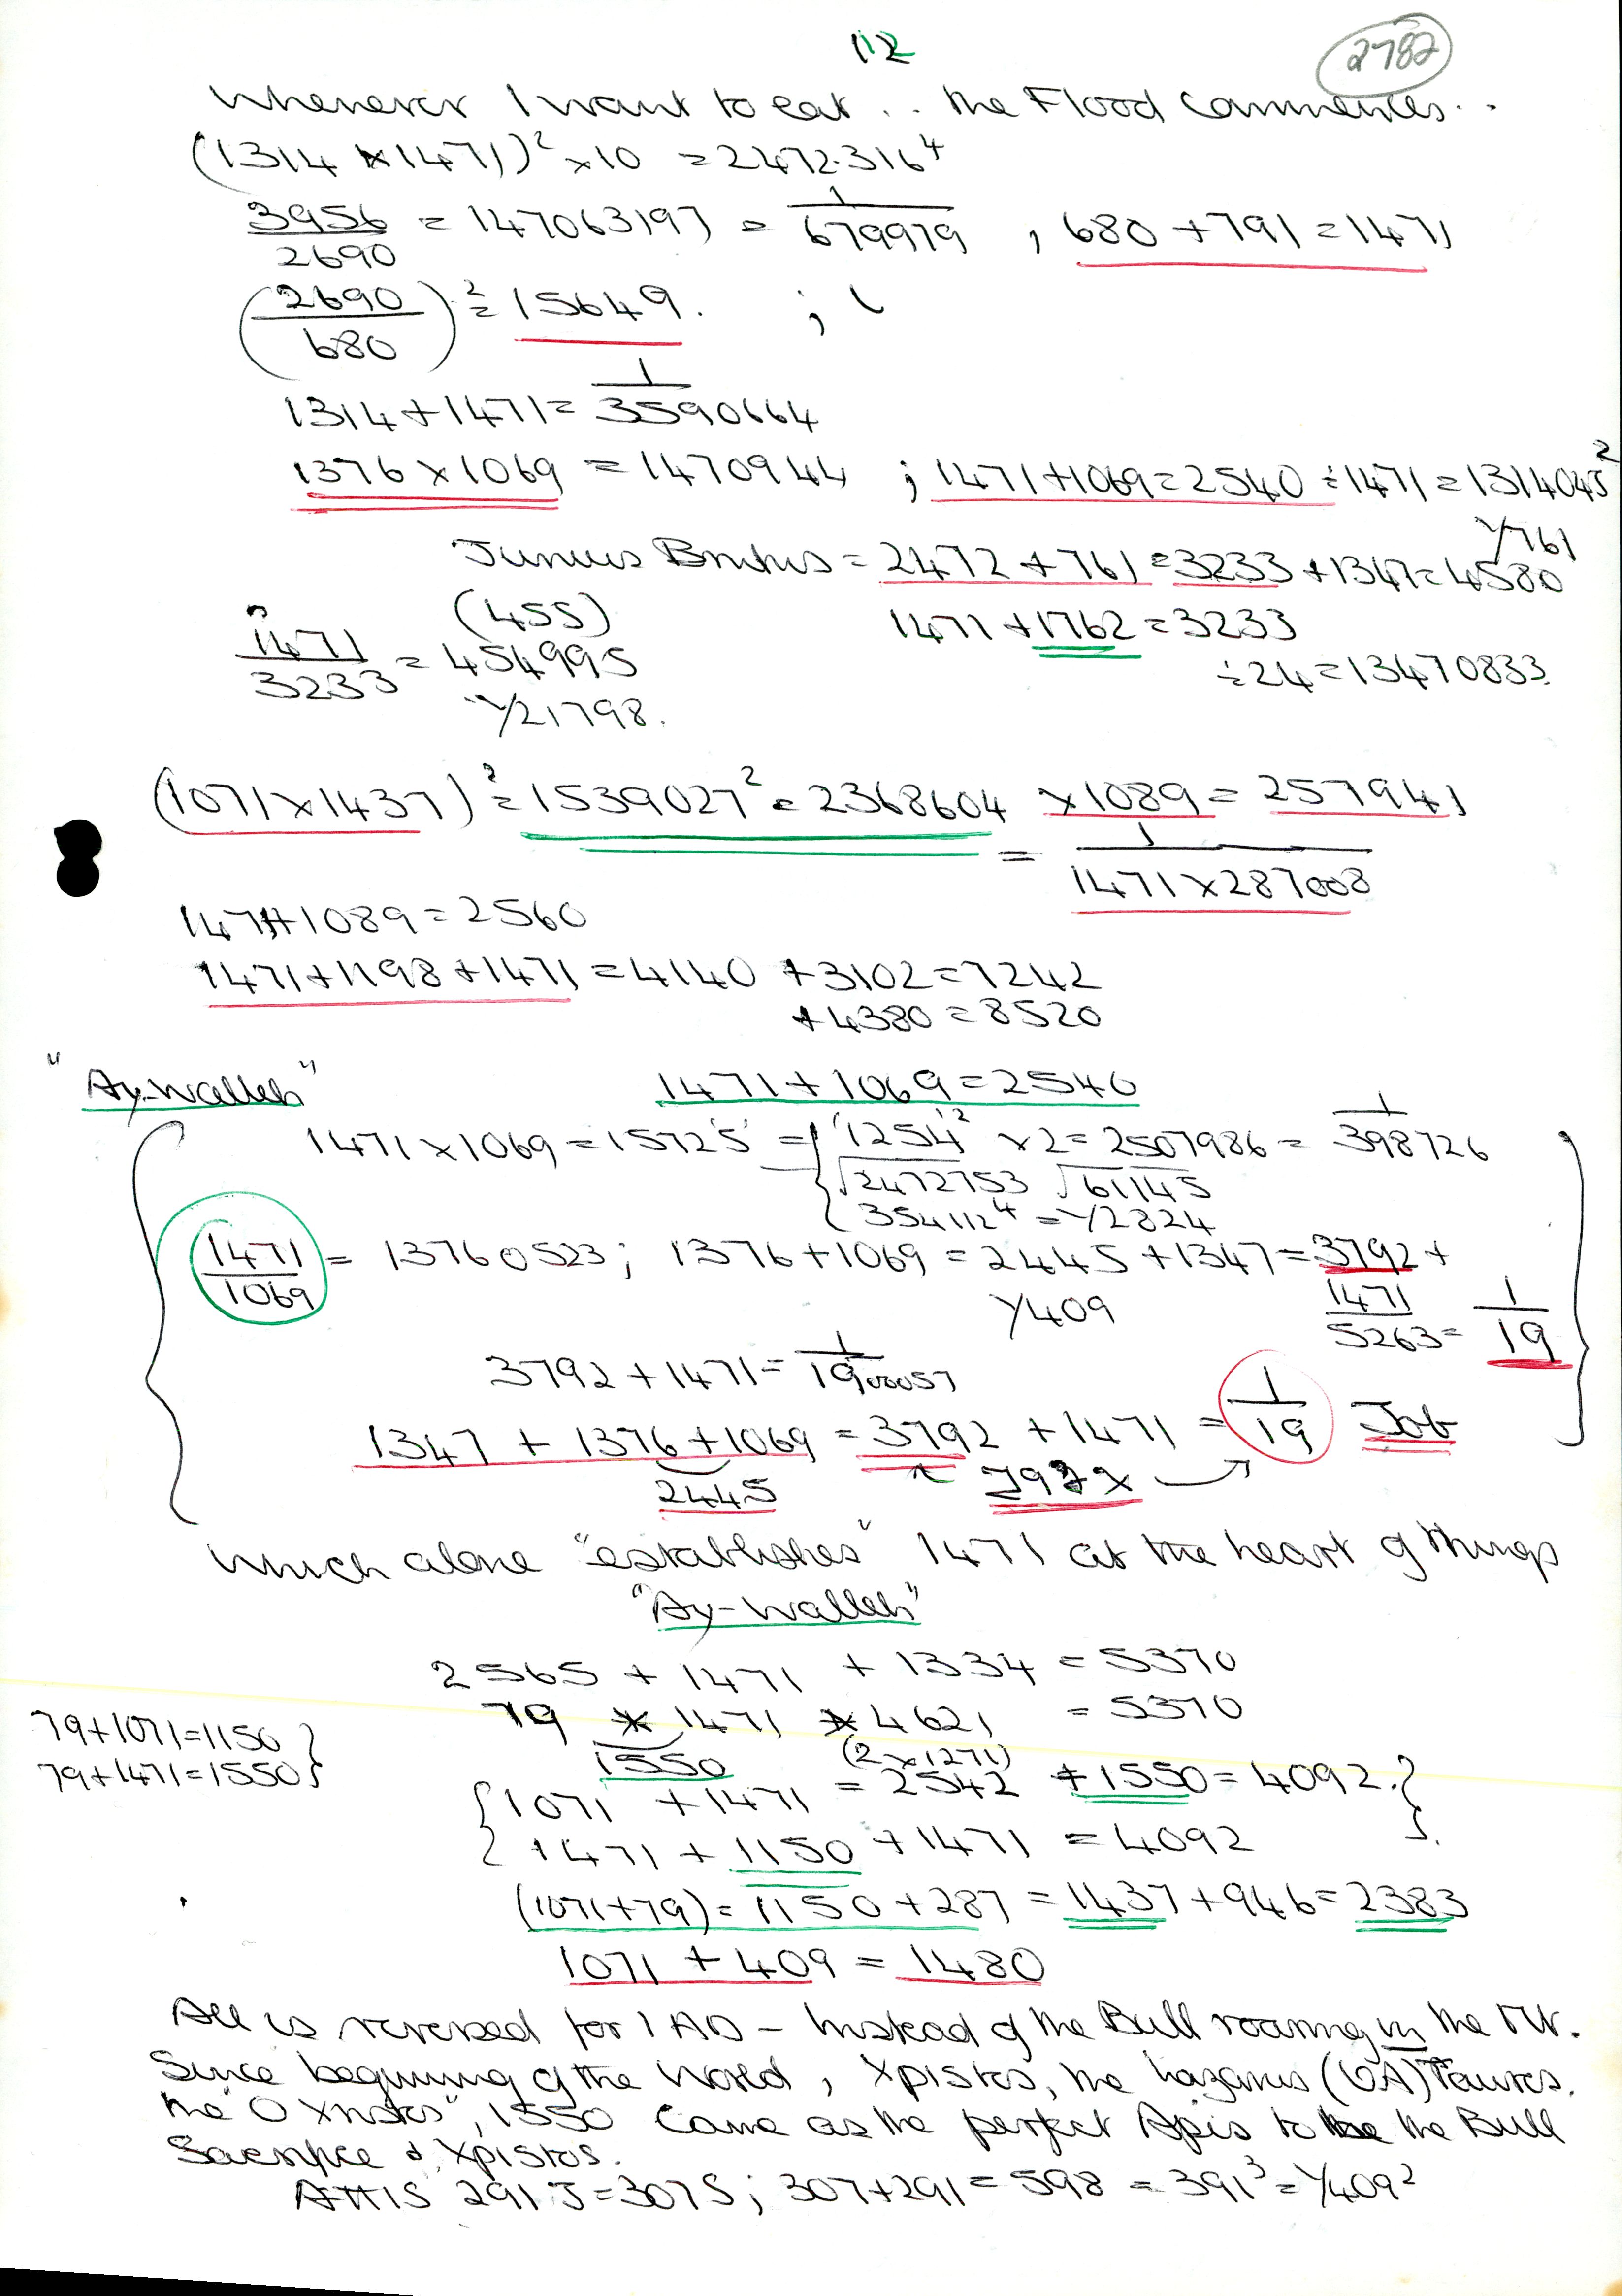 112
2782
Whenever I want to eat . . the Flood commences . .
(1314 × 1471)² × 10 = 2472.316⁴
3956/2690 = 147063197 = 1/679979 , 680 + 791 = 1471
(2690/680)² = 15649. ;
1314 + 1471 = 1/3590664
1376 × 1069 = 1470944 ; 1471 + 1069 = 2540 ÷ 1471 = 1314045²
1/761
Junius Brutus = 2472 + 761 = 3233 + 1347 = 4580
(455) 1471 + 1762 = 3233
1471/3233 = 454995 ÷ 24 = 13470833.
1/21798.
(1071 × 1437)² = 1539027² = 2368604 × 1089 = 257941
= 1/1471 × 287008
1471 + 1089 = 2560
1471 + 1198 + 1471 = 4140 + 3102 = 7242
+ 4380 = 8520
"Ay-Walleh" 1471 + 1069 = 2540
1471 × 1069 = 15725 = 1254² × 2 = 2507986 = 1/398726
√2472753 √61145
354112⁴ = 1/2824
1471/1069 = 13760523; 1376 + 1069 = 2445 + 1347 = 3792 +
1/409 1471
5263 = 1/19
3792 + 1471 = 1/19000057
1347 + 1376 + 1069 = 3792 + 1471 = 1/19 Job
2445
which alone "establishes" 1471 at the heart of things
"Ay-Walleh"
2565 + 1471 + 1334 = 5370
79 × 1471 × 4621 = 5370
79 + 1071 = 1150
79 + 1471 = 1550
1550 (2 × 1271)
1071 + 1471 = 2542 + 1550 = 4092.
1471 + 1150 + 1471 = 4092
(1071 + 79) = 1150 + 287 = 1437 + 946 = 2383
1071 + 409 = 1480
All is reversed for 1 AD – Instead of the Bull roaring in the
Since beginning of the World, Xpistos, the Lazarus (OA) Taurus.
the "O Xristos", 1550 came as the perfect Apis to be the Bull
Sacrifice d. Xpistos.
ATTIS 291 J = 307 S; 307 + 291 = 598 = 391³ = 1/409²